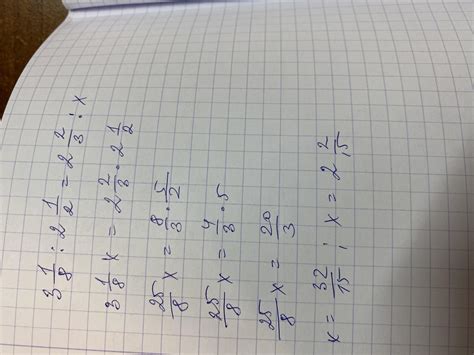 3 1/8 : 2 1/2 = 2 2/3 : x
3 1/8 x = 2 2/3 · 2 1/2
25/8 x = 8/3 · 5/2
25/8 x = 4/3 · 5
25/8 x = 20/3
x = 32/15 ; x = 2 2/15